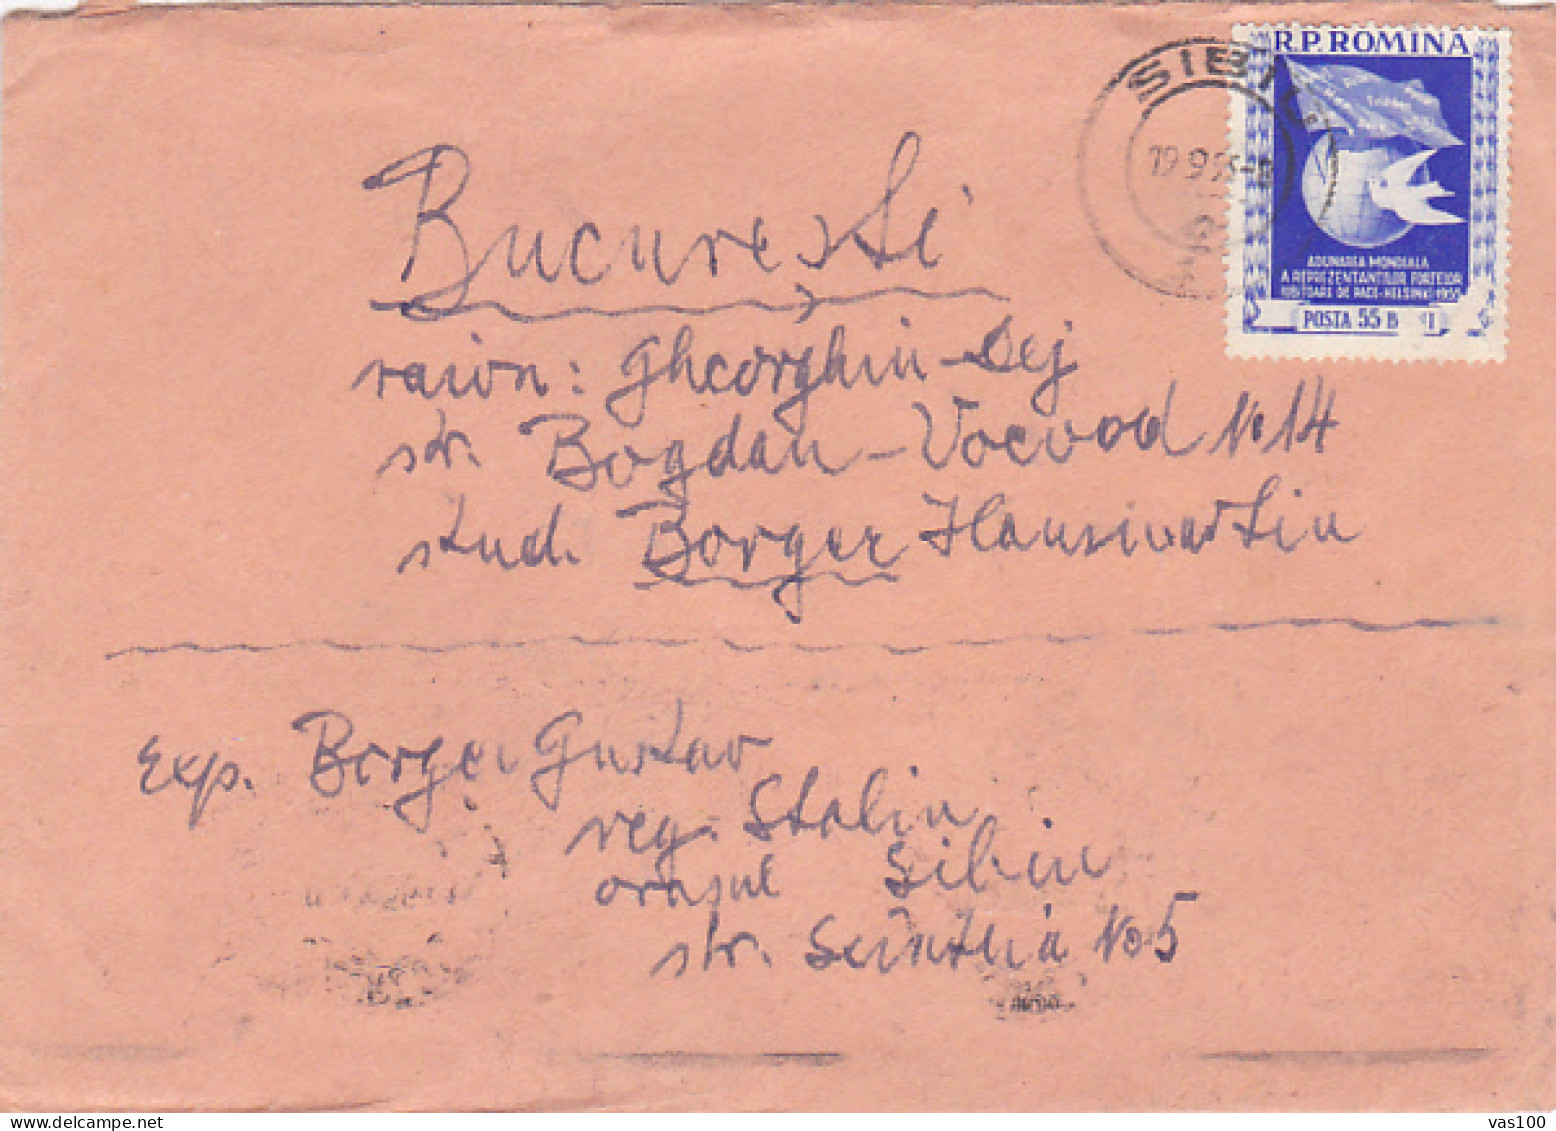 R.P. ROMINA
SIBIU
19.9.55
ADUNAREA MONDIALA
A REPREZENTANTILOR FORTELOR
IUBITOARE DE PACE-HELSINKI 1955
POSTA 55 B NI
București
raion: Gheorghiu-Dej
str. Bogdan-Voevod No 14
stud. Borger
Exp. Borger Gustav
reg. Stalin
orașul Sibiu
str. Scînteia No 5
vas100